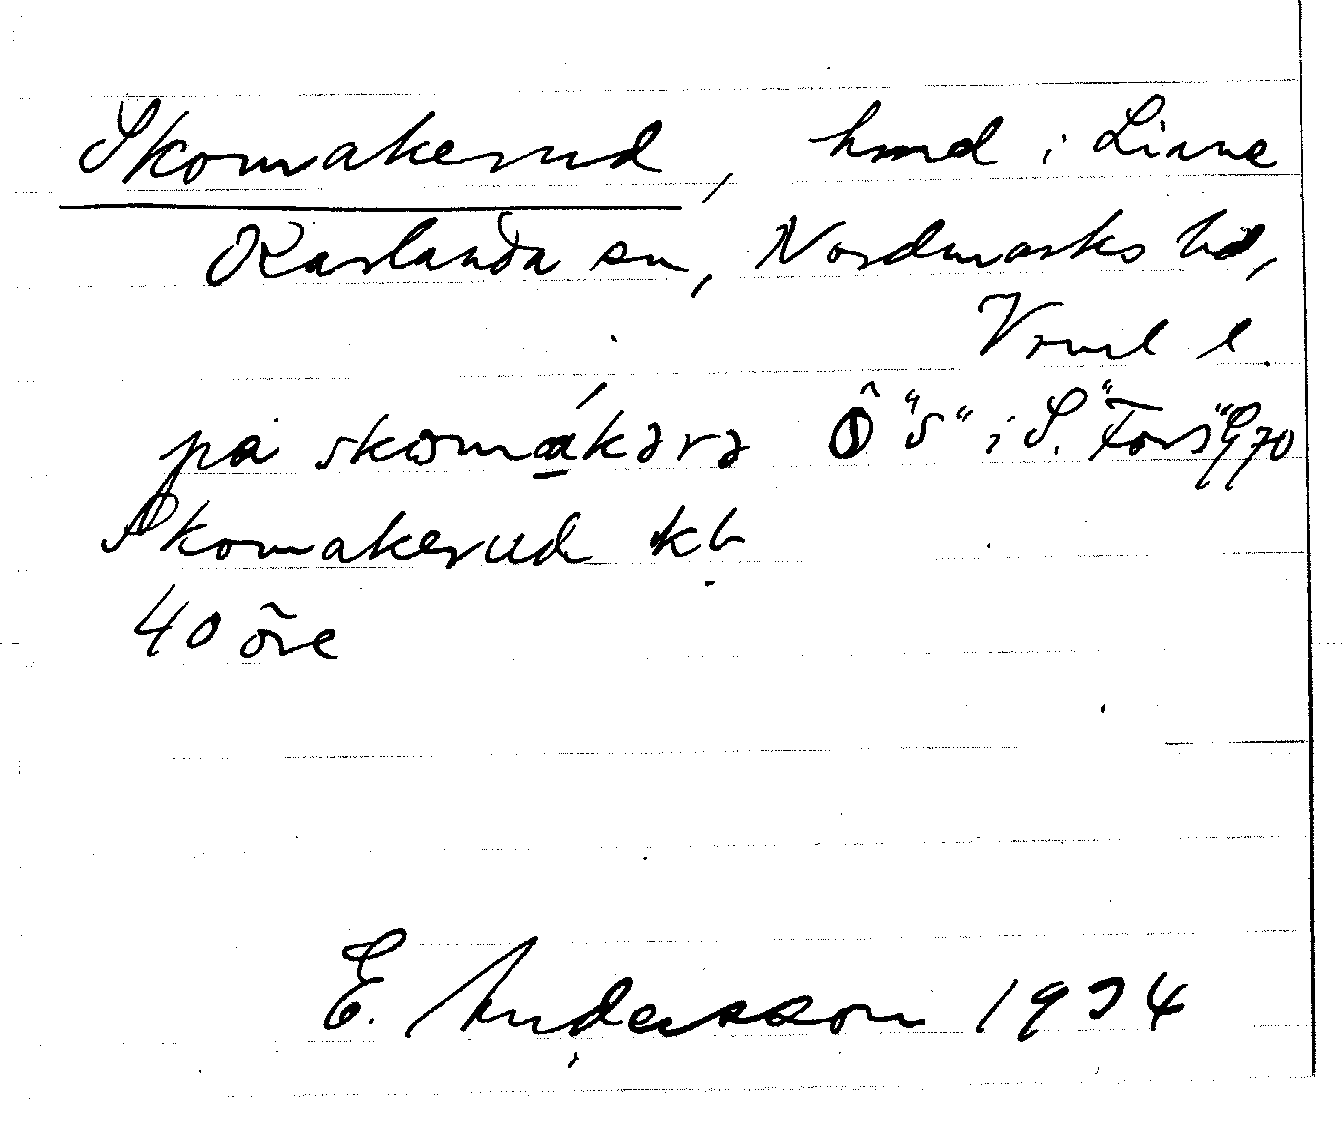 Skomakerud, hmd i Liane
Karlanda sn, Nordmarks hd,
Vrml l.
på skomákərə Ô "S" i S. "Fors" 9/70
Skomakerud kb
40 öre
E. Andersson 1934